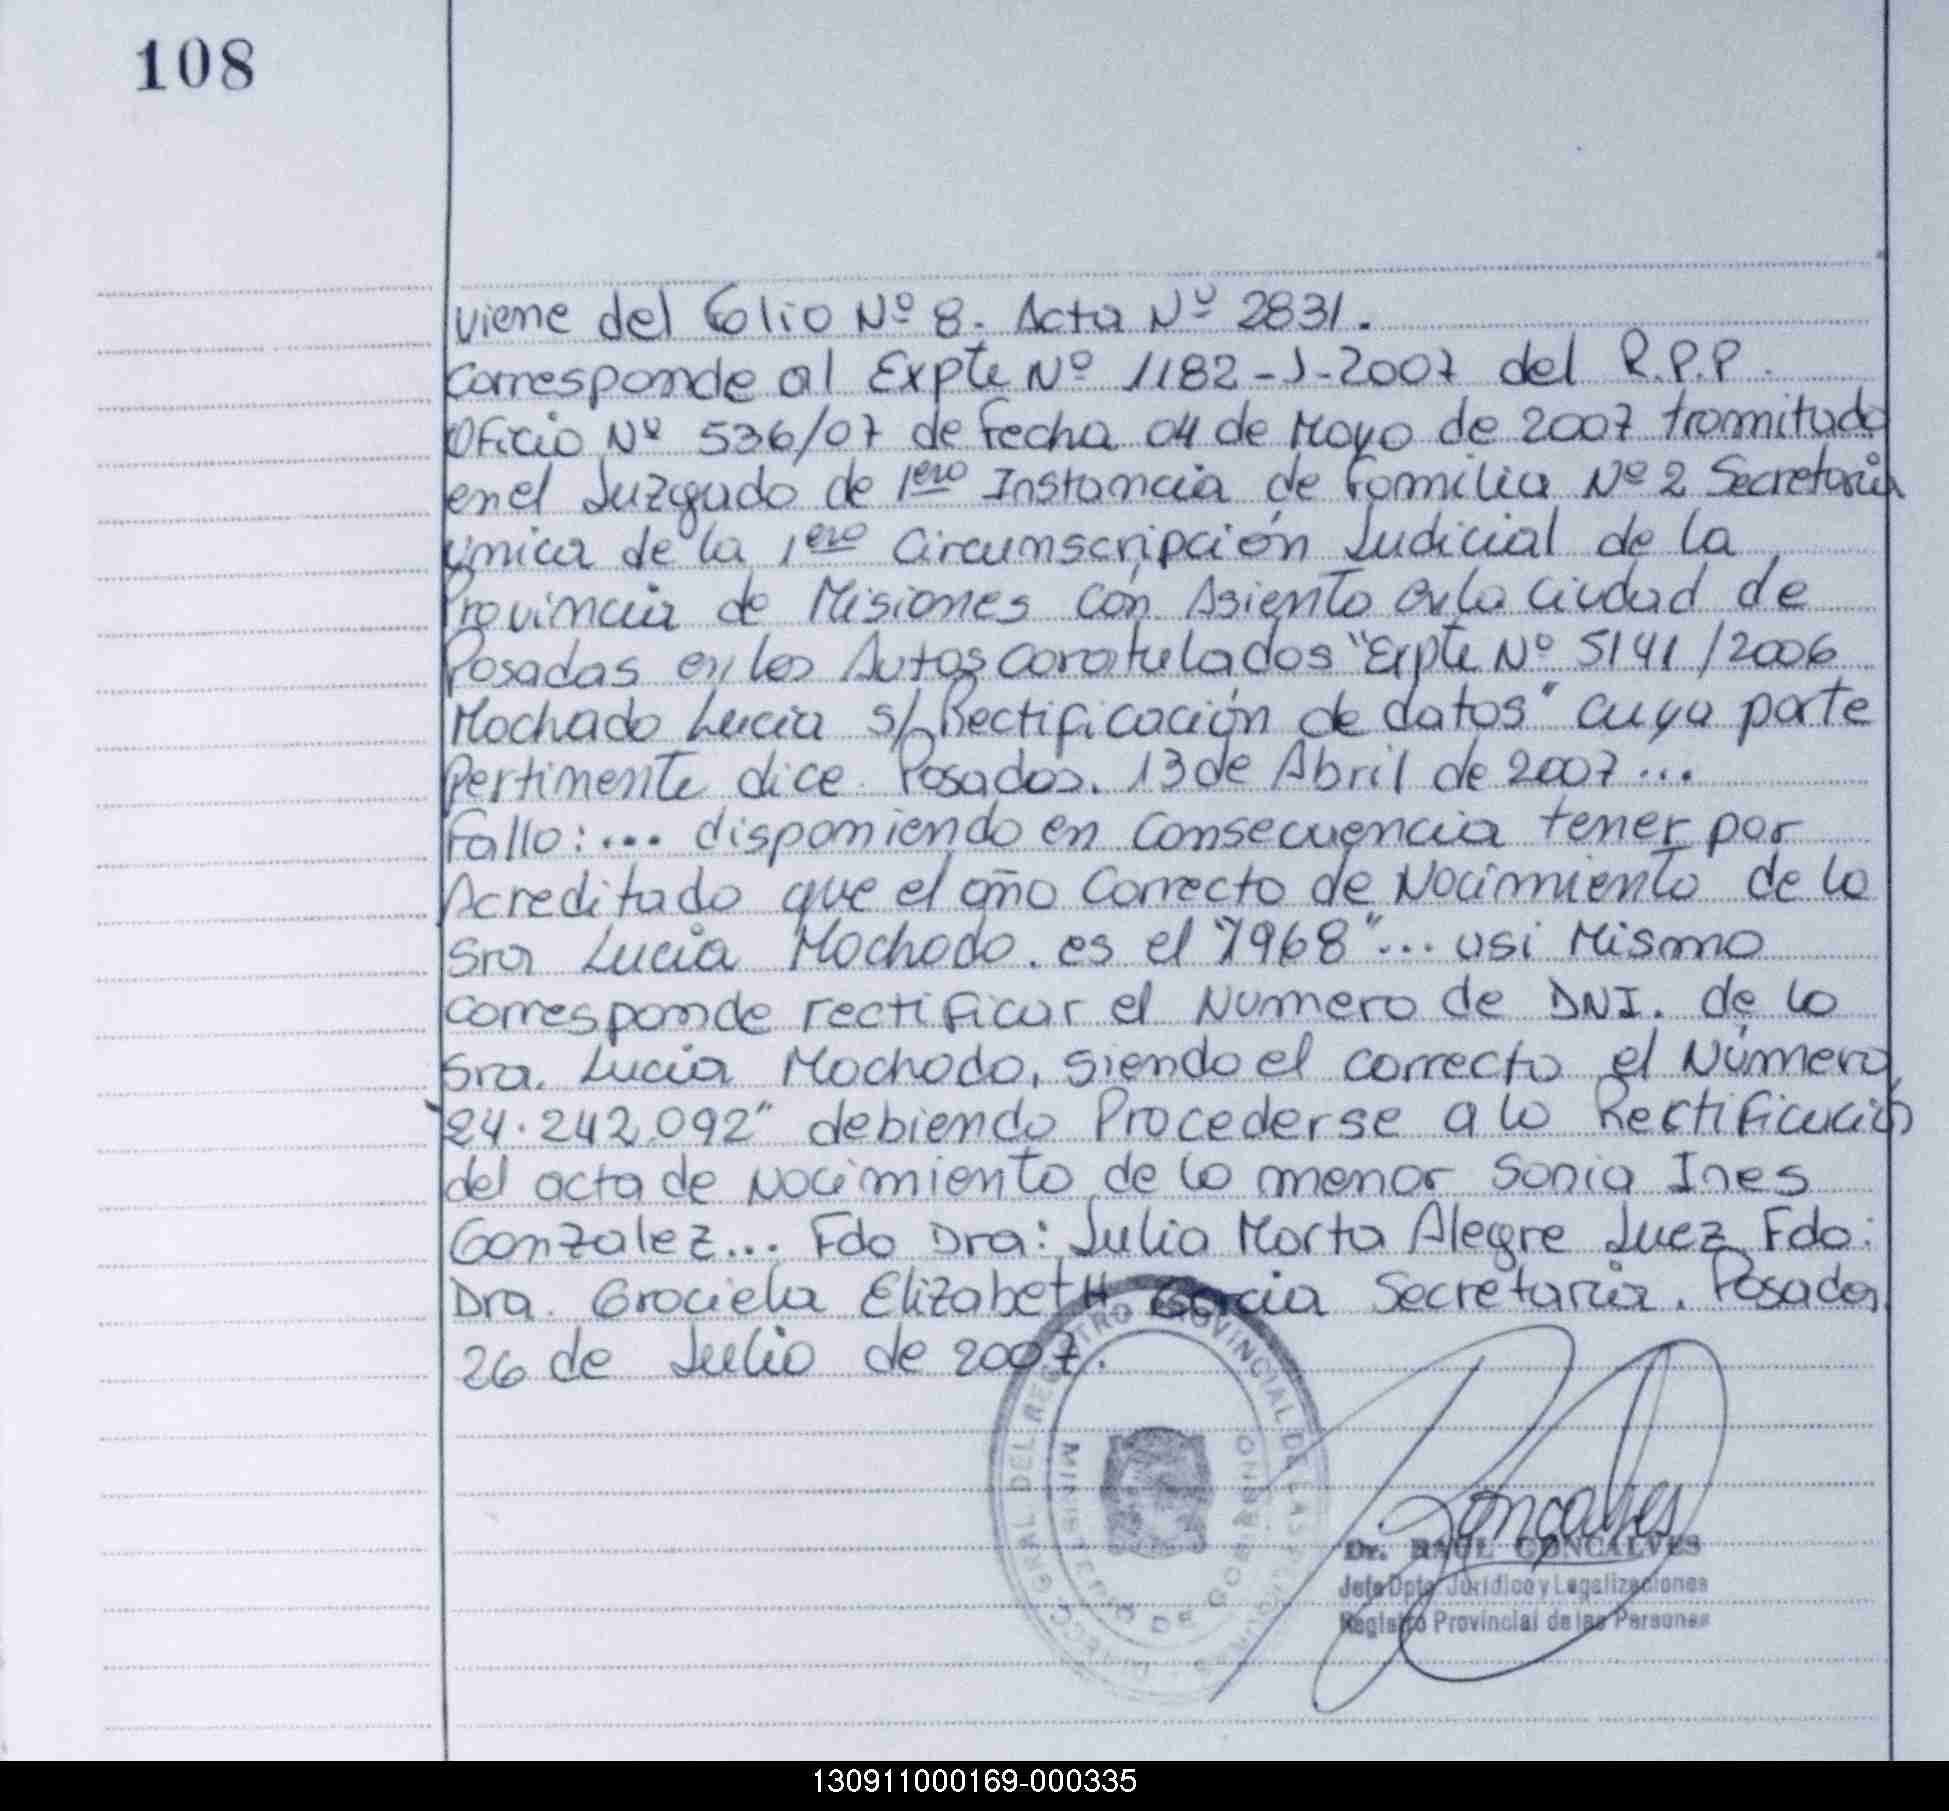 108
viene del Folio Nº 8. Acta Nº 2831.
Corresponde al Expte Nº 1182-J-2007 del R.P.P.
Oficio Nº 536/07 de Fecha 04 de Mayo de 2007 tramitado
en el Juzgado de 1era Instancia de Familia Nº 2 Secretaria
única de la 1era Circunscripción Judicial de la
Provincia de Misiones con Asiento en la Ciudad de
Posadas en los Autos caratulados "Expte Nº 5141/2006
Machado Lucia s/Rectificación de datos" cuya parte
Pertinente dice. Posadas. 13 de Abril de 2007...
Fallo:... disponiendo en consecuencia tener por
Acreditado que el año Correcto de Nacimiento de la
Sra Lucia Machado. es el "1968"... asi Mismo
corresponde rectificar el Numero de DNI. de la
Sra. Lucia Machado, siendo el correcto el Número
"24.242.092" debiendo Procederse a la Rectificación
del acta de Nacimiento de la menor Sonia Ines
Gonzalez... Fdo Dra: Julia Marta Alegre Juez Fdo:
Dra. Graciela Elizabeth Garcia Secretaria. Posadas
26 de Julio de 2007.
DIRECC. GRAL DEL REGISTRO PROVINCIAL DE LAS PERSONAS
MINISTERIO DE GOBIERNO
Goncalves
Dr. RAUL GONCALVES
Jefe Dpto. Jurídico y Legalizaciones
Registro Provincial de las Personas
130911000169-000335